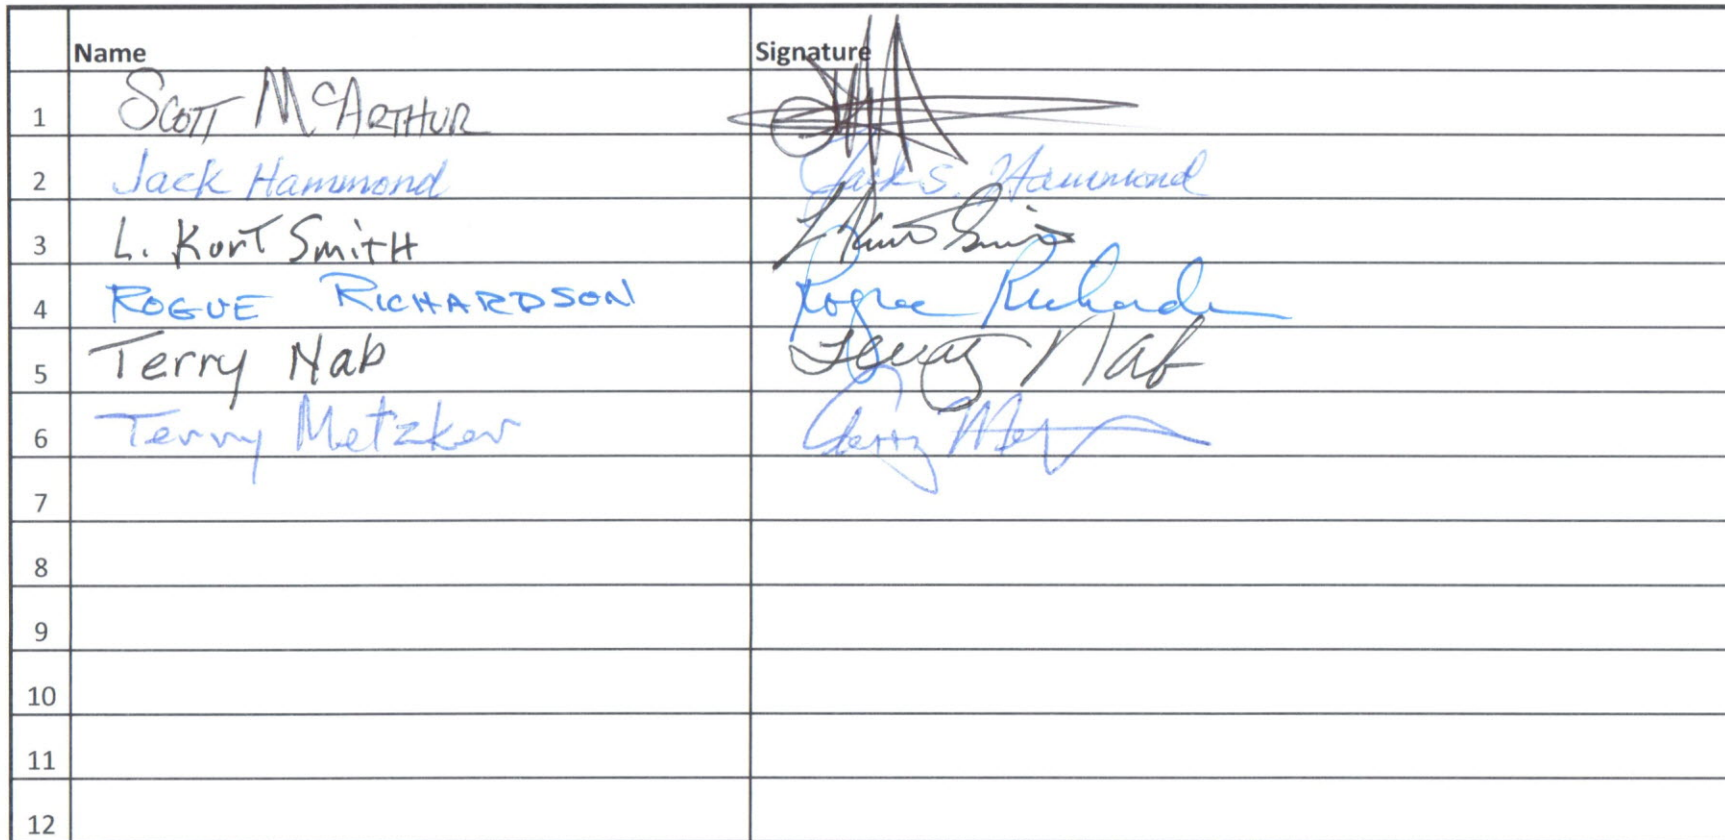 Name Signature
1 SCOTT McARTHUR
2 Jack Hammond Jack S. Hammond
3 L. Kurt Smith L Kurt Smith
4 ROGUE RICHARDSON Rogue Richardson
5 Terry Nab Terry Nab
6 Terry Metzker Terry
7
8
9
10
11
12